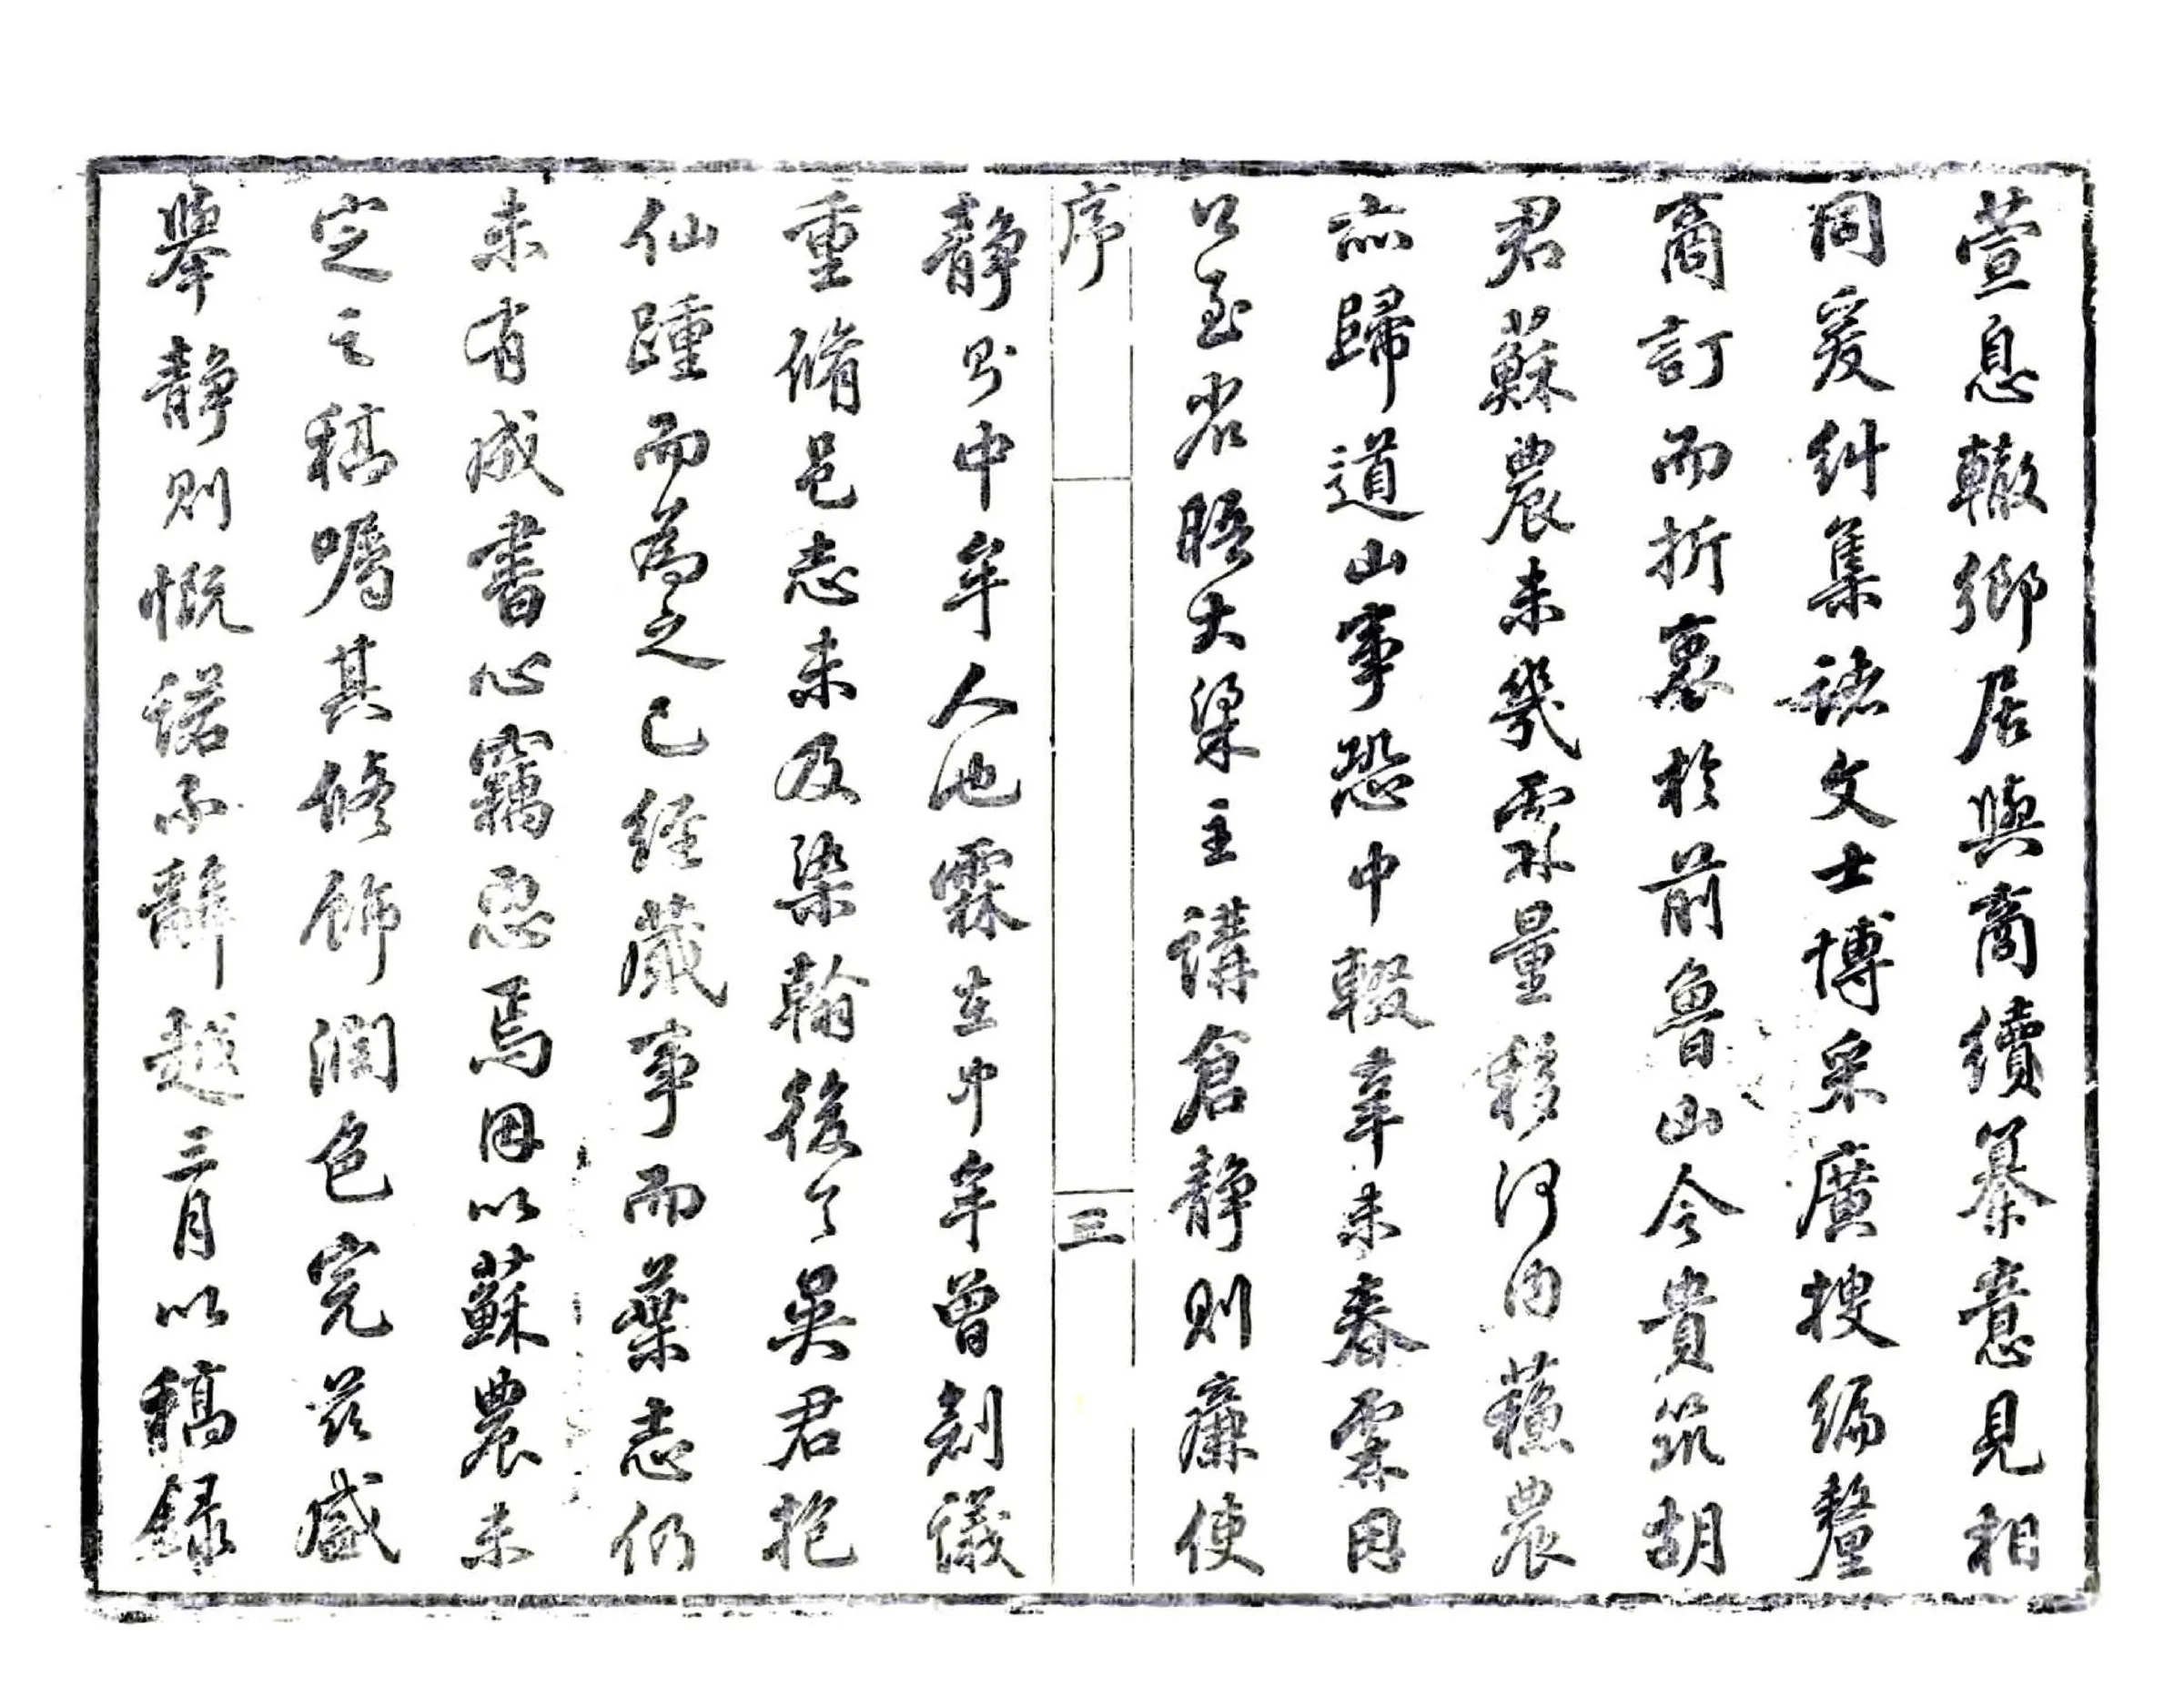 萱息轍鄉居與商續纂意見相
同爰糾集諸文士博采廣搜編釐
商訂而折衷於前魯山令貴筑胡
君蘇農未幾霖量移河內蘓農
亦歸道山事恐中輟辛未春霖因
公至省晤大梁主講倉靜則廉使
序
三
靜則中牟人也霖在中牟曾創議
重脩邑志未及染翰後之吳君抱
仙踵而為之已經蕆事而葉志仍
未有成書心竊恧焉因以蘇農未
定之稿囑其修飾潤色完茲盛
舉靜則慨諾不辭越三月以稿錄